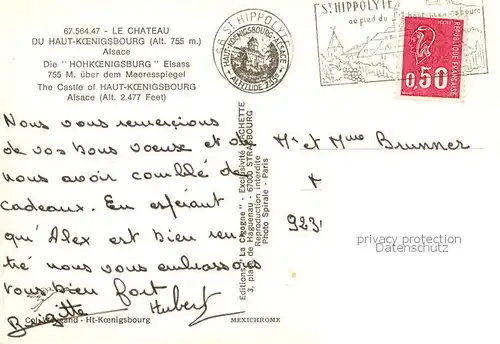 67.564.47 - LE CHATEAU
DU HAUT-KŒNIGSBOURG (Alt. 755 m.)
Alsace
Die "HOHKŒNIGSBURG" Elsass
755 M. über dem Meeresspiegel
The Castle of HAUT-KŒNIGSBOURG
Alsace (Alt. 2.477 Feet)
68 ST HIPPOLYTE
HAUT-KŒNIGSBOURG-ALSACE
ALTITUDE 755
ST HIPPOLYTE
au pied du
0,50
REPUBLIQUE FRANÇAISE
Nous vous remercions
de vos bons voeux et de
nous avoir comblé de
cadeaux. En espérant
qu'Alex est bien ren
tré nous vous embrassons
tous bien fort
Brigitte Hubert
Ht-Kœnigsbourg
MEXICHROME
Editions "La Cigogne" - Exclusivité HACHETTE
3, place de Haguenau - 67000 STRASBOURG
Reproduction interdite
Photo Spirale - Paris
Mr et Mme Brunner
923
privacy protection
Datenschutz